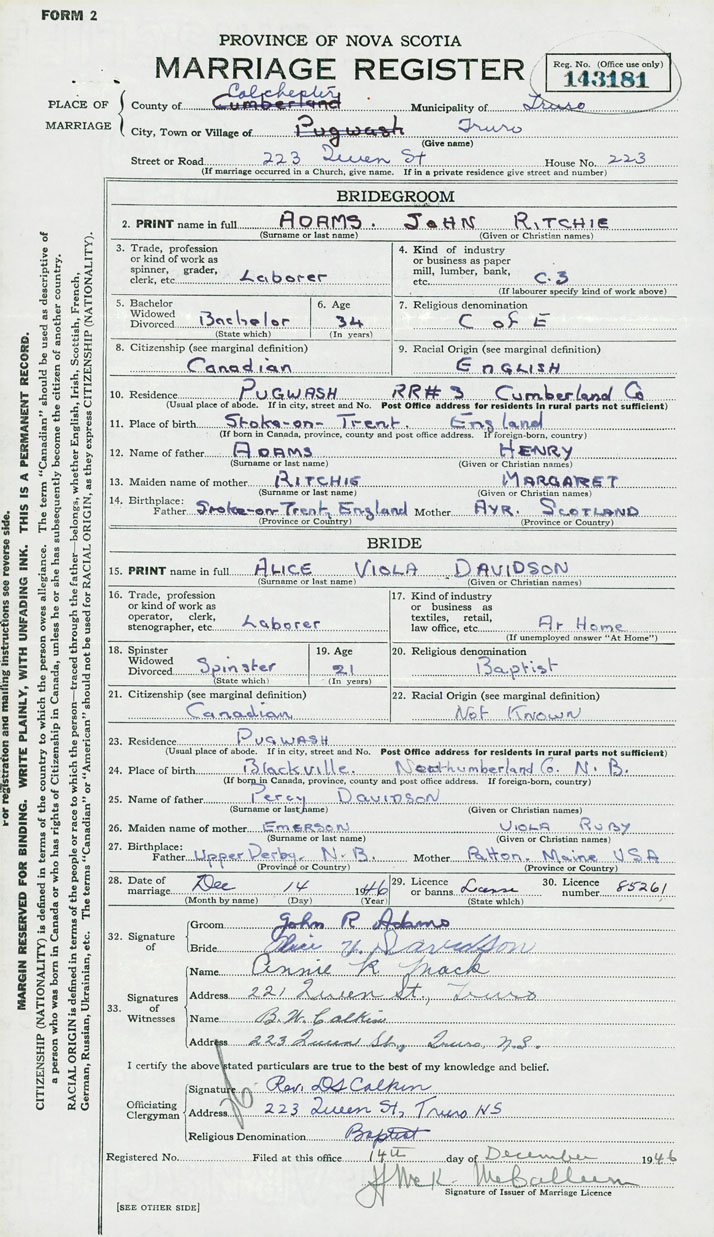 FORM 2
PROVINCE OF NOVA SCOTIA
MARRIAGE REGISTER
Reg. No. (Office use only)
143181
PLACE OF MARRIAGE
Colchester
County of Cumberland Municipality of Truro
City, Town or Village of Pugwash Truro
(Give name)
Street or Road 223 Queen St House No. 223
(If marriage occurred in a Church, give name. If in a private residence give street and number)
BRIDEGROOM
2. PRINT name in full ADAMS. JOHN RITCHIE
(Surname or last name) (Given or Christian names)
3. Trade, profession or kind of work as spinner, grader, clerk, etc. Laborer
4. Kind of industry or business as paper mill, lumber, bank, etc. C.3
(If labourer specify kind of work above)
5. Bachelor Widowed Divorced Bachelor
(State which)
6. Age 34
(In years)
7. Religious denomination
C of E
8. Citizenship (see marginal definition)
Canadian
9. Racial Origin (see marginal definition)
ENGLISH
10. Residence PUGWASH RR#3 Cumberland Co
(Usual place of abode. If in city, street and No. Post Office address for residents in rural parts not sufficient)
11. Place of birth Stoke-on-Trent. England
(If born in Canada, province, county and post office address. If foreign-born, country)
12. Name of father ADAMS HENRY
(Surname or last name) (Given or Christian names)
13. Maiden name of mother RITCHIE MARGARET
(Surname or last name) (Given or Christian names)
14. Birthplace:
Father Stoke-on-Trent, England Mother AYR. SCOTLAND
(Province or Country) (Province or Country)
BRIDE
15. PRINT name in full ALICE VIOLA DAVIDSON
(Surname or last name) (Given or Christian names)
16. Trade, profession or kind of work as operator, clerk, stenographer, etc. Laborer
17. Kind of industry or business as textiles, retail, law office, etc. At Home
(If unemployed answer "At Home")
18. Spinster Widowed Divorced Spinster
(State which)
19. Age 21
(In years)
20. Religious denomination
Baptist
21. Citizenship (see marginal definition)
Canadian
22. Racial Origin (see marginal definition)
Not Known
23. Residence PUGWASH
(Usual place of abode. If in city, street and No. Post Office address for residents in rural parts not sufficient)
24. Place of birth Blackville. Northumberland Co. N. B.
(If born in Canada, province, county and post office address. If foreign-born, country)
25. Name of father Percy DAVIDSON
(Surname or last name) (Given or Christian names)
26. Maiden name of mother EMERSON VIOLA RUBY
(Surname or last name) (Given or Christian names)
27. Birthplace:
Father Upper Derby. N.B. Mother Patton. Maine USA
(Province or Country) (Province or Country)
28. Date of marriage Dec 14 1946
(Month by name) (Day) (Year)
29. Licence or banns
(State which)
30. Licence number 85261
32. Signature of
Groom John R Adams
Bride Alice V. Davidson
33. Signatures of Witnesses
Name Annie K Mack
Address 221 Queen St., Truro
Name B. W. Calkin
Address 223 Queen St., Truro, N.S.
I certify the above stated particulars are true to the best of my knowledge and belief.
Officiating Clergyman
Signature Rev. D S Calkin
Address 223 Queen St, Truro NS
Religious Denomination Baptist
Registered No. Filed at this office 14th day of December 1946
H McK. McCallum
Signature of Issuer of Marriage Licence
[SEE OTHER SIDE]
For registration and mailing instructions see reverse side.
MARGIN RESERVED FOR BINDING. WRITE PLAINLY, WITH UNFADING INK. THIS IS A PERMANENT RECORD.
CITIZENSHIP (NATIONALITY) is defined in terms of the country to which the person owes allegiance. The term "Canadian" should be used as descriptive of
a person who was born in Canada or who has rights of Citizenship in Canada, unless he or she has subsequently become the citizen of another country.
RACIAL ORIGIN is defined in terms of the people or race to which the person—traced through the father—belongs, whether English, Irish, Scottish, French,
German, Russian, Ukrainian, etc. The terms "Canadian" or "American" should not be used for RACIAL ORIGIN, as they express CITIZENSHIP (NATIONALITY).